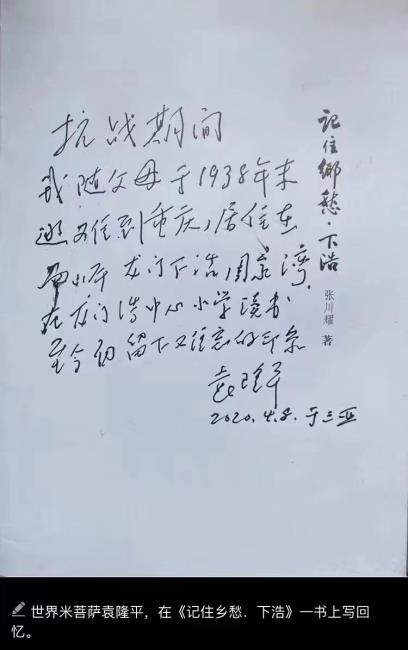 抗战期间
我随父母于1938年末
逃难到重庆,居住在
南岸龙门下浩周家湾,
在龙门浩中心小学读书,
至今仍留下难忘的印象
袁隆平
2020.4.8.于三亚
记住鄉愁·下浩
张川耀 著
世界米菩萨袁隆平，在《记住乡愁．下浩》一书上写回
忆。